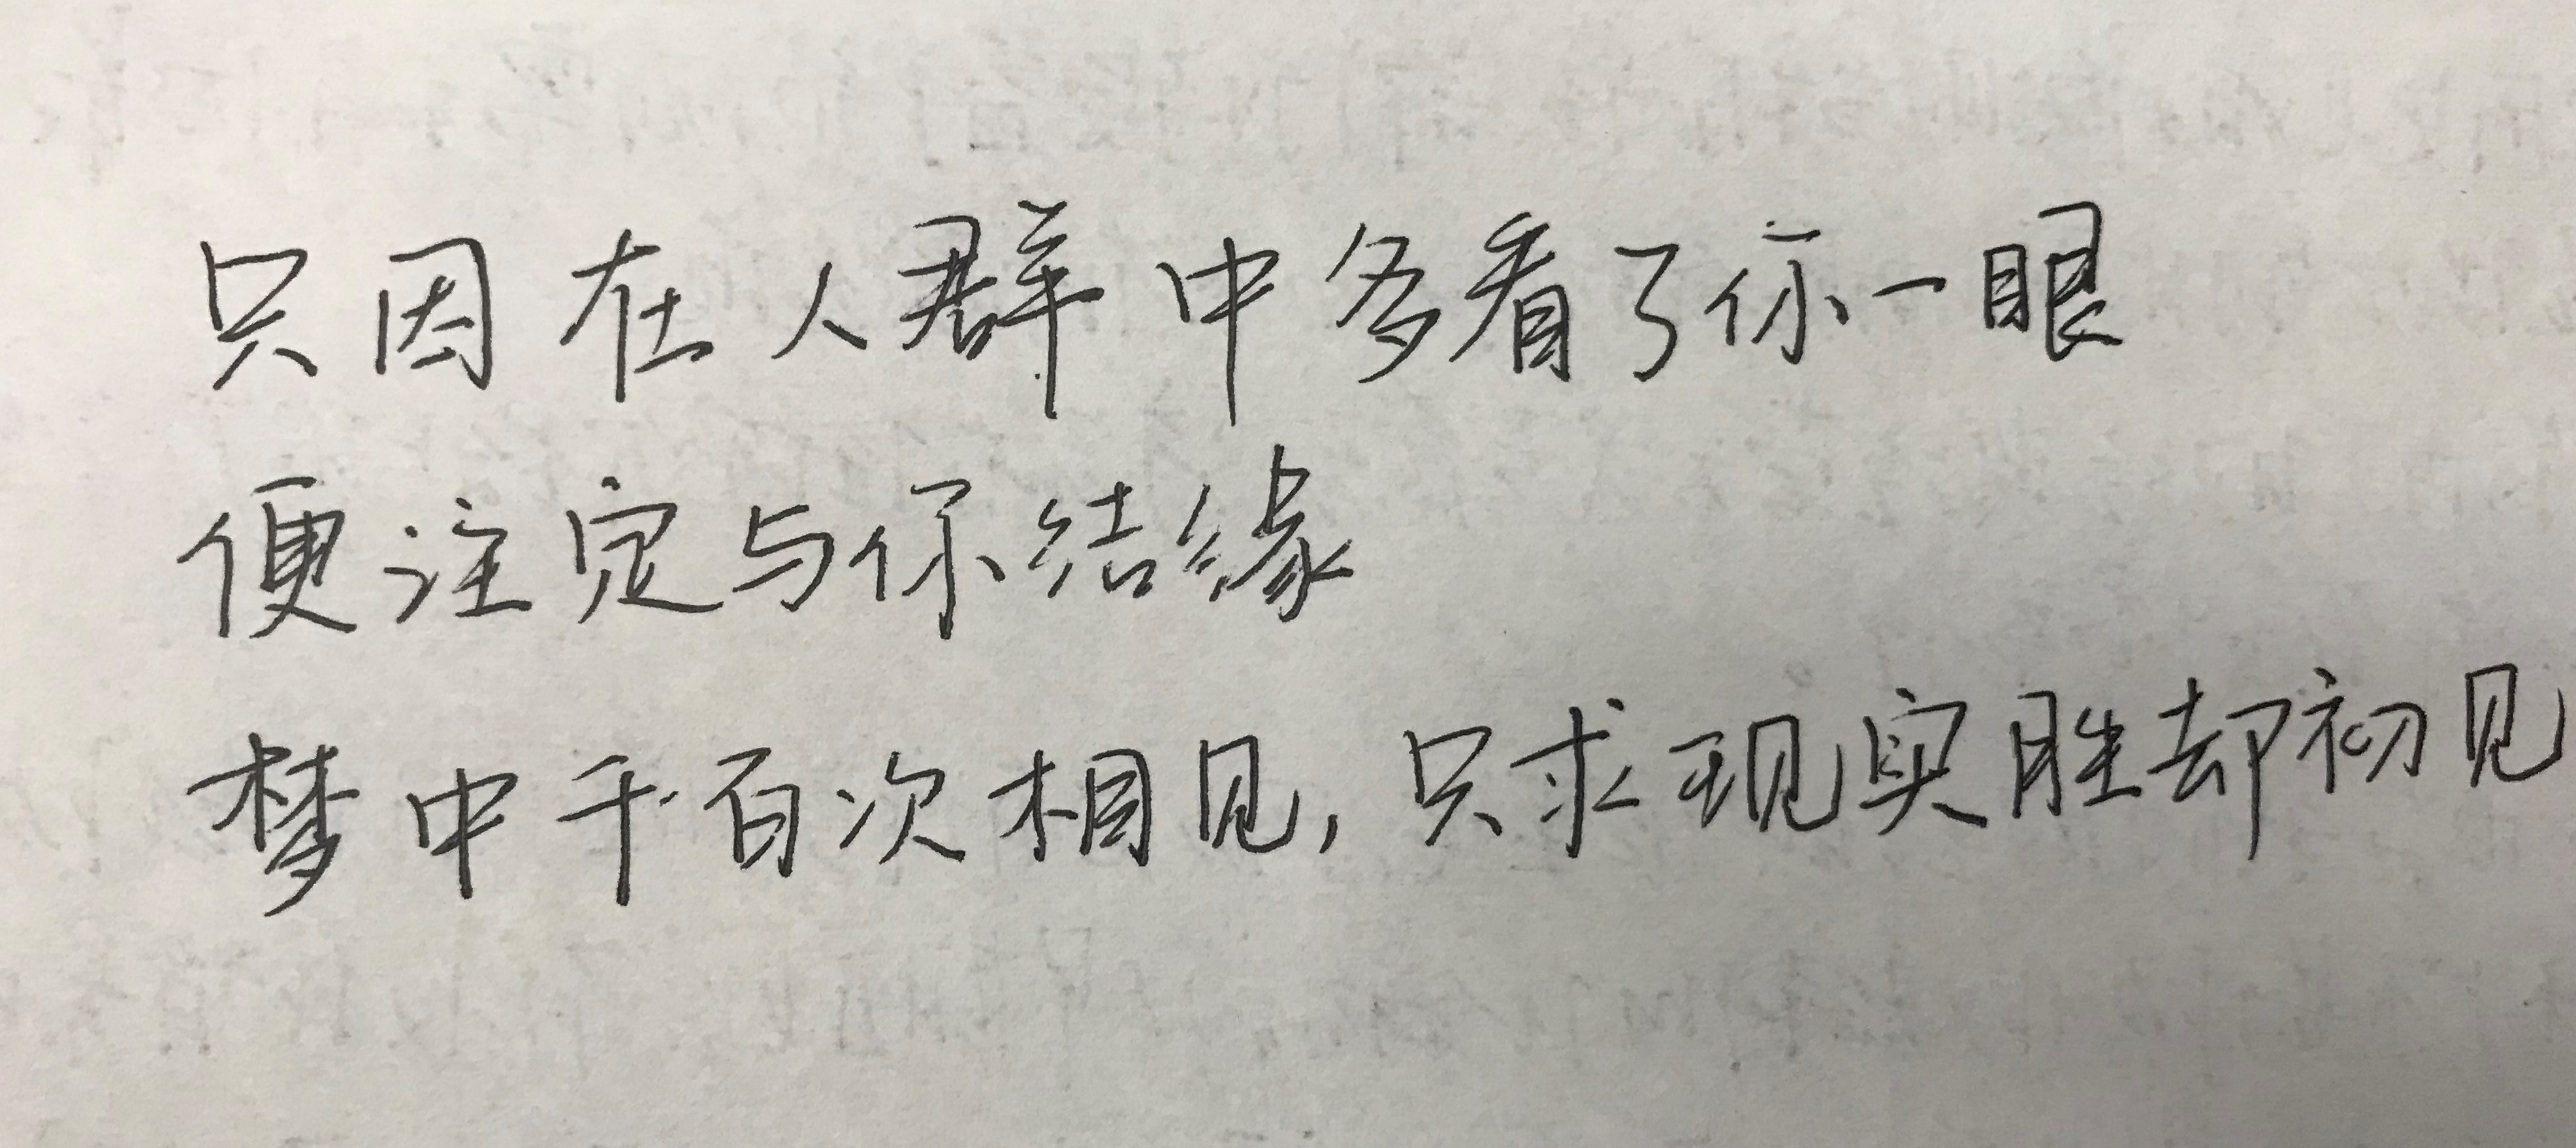 只因在人群中多看了你一眼
便注定与你结缘
梦中千百次相见,只求现实胜却初见